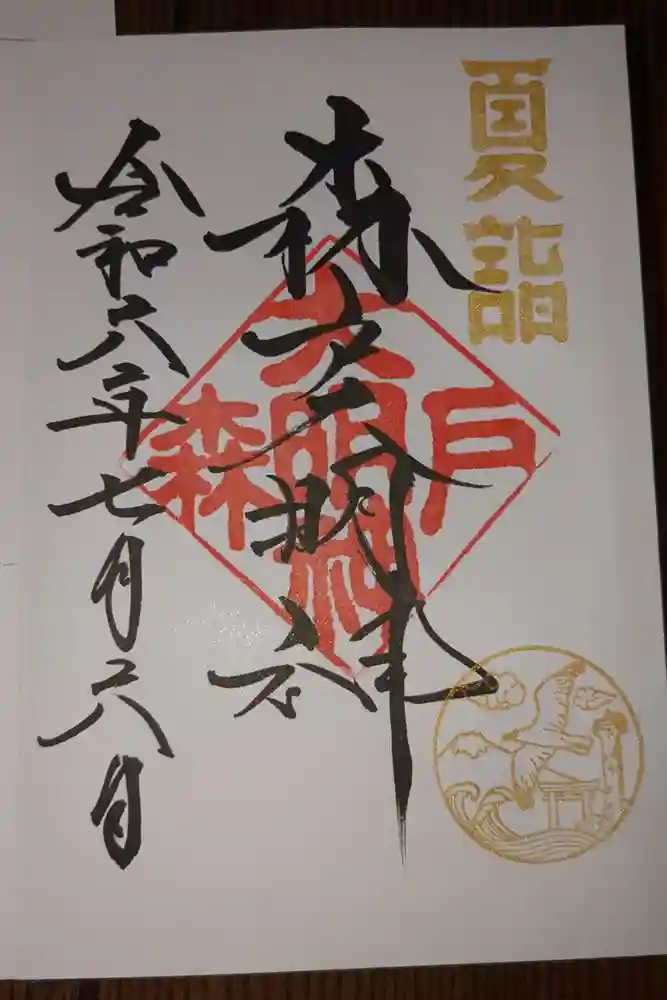 夏詣
森戸大明神
森戸大明神
令和六年七月六日